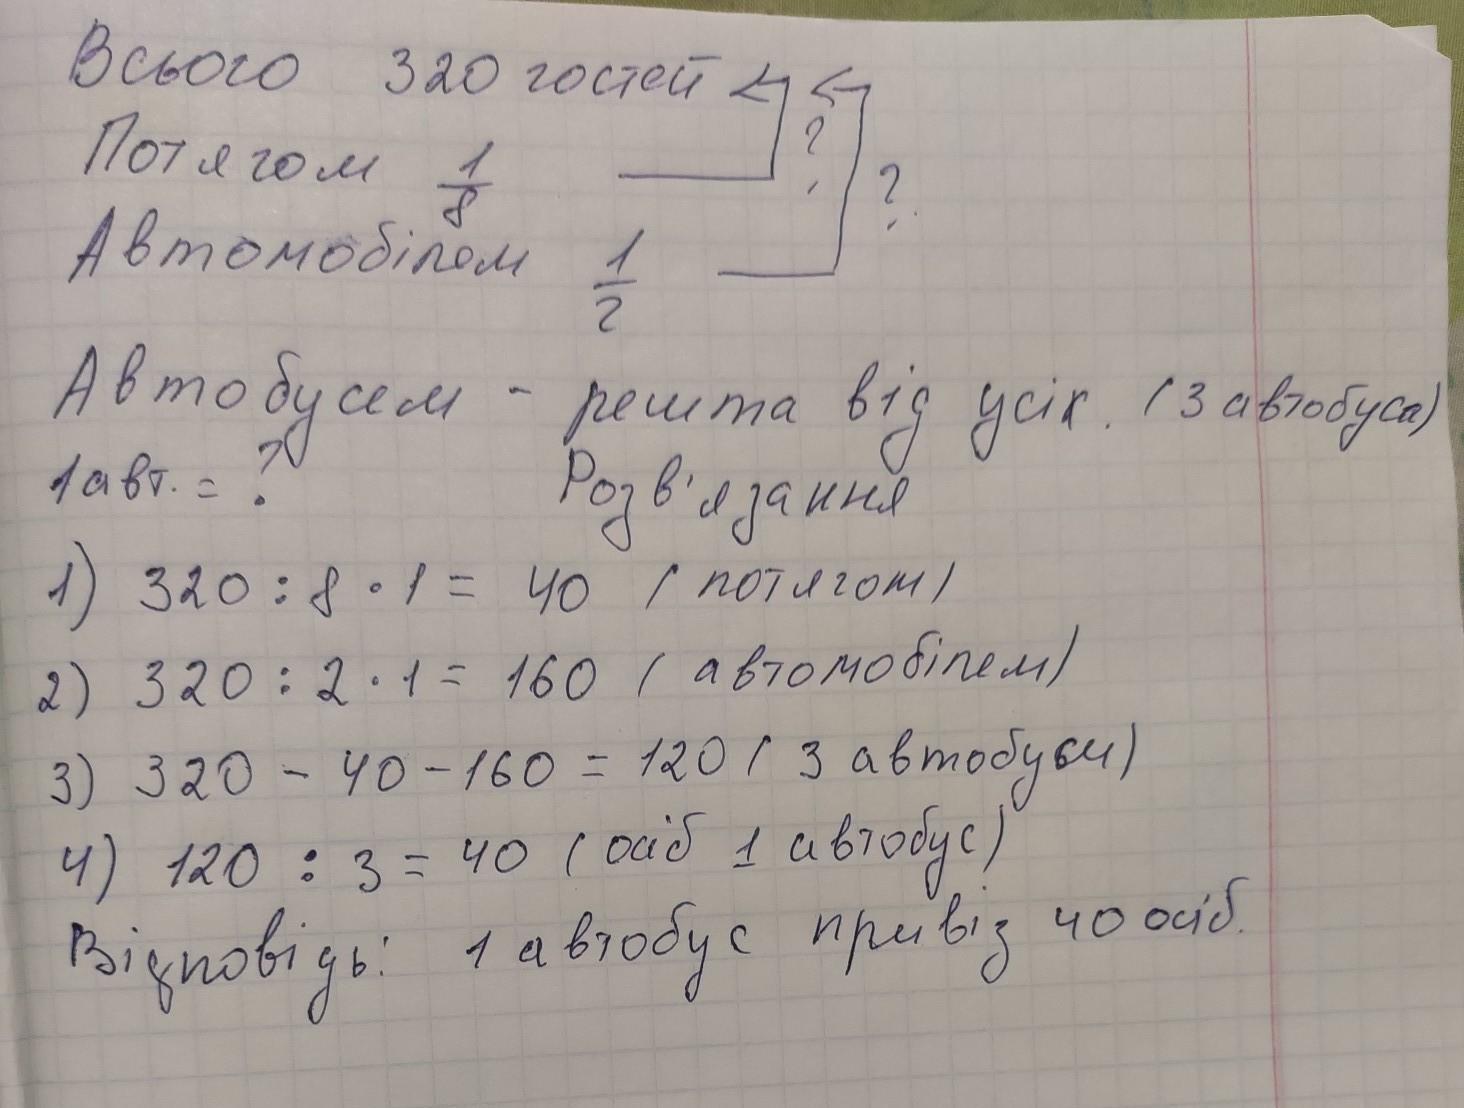 Всього 320 гостей
Потягом 1/8 ?
Автомобілем 1/2 ?
Автобусем - решта від усіх. (3 автобуса)
1 авт. = ? Розв'язання
1) 320 : 8 · 1 = 40 (потягом)
2) 320 : 2 · 1 = 160 (автомобілем)
3) 320 - 40 - 160 = 120 (3 автобуси)
4) 120 : 3 = 40 (осіб 1 автобус)
Відповідь: 1 автобус привіз 40 осіб.